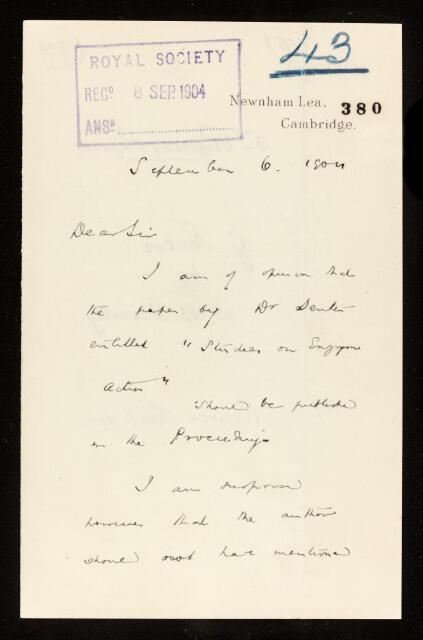 43
ROYAL SOCIETY
RECD 8 SEP. 1904
ANSD
Newnham Lea. 380
Cambridge.
September 6. 1904
Dear Sir
I am of opinion that
the paper by Dr
entitled "Studies on Enzyme
Action"
should be published
in the Proceedings
I am surprised
however that the author
should not have mentioned